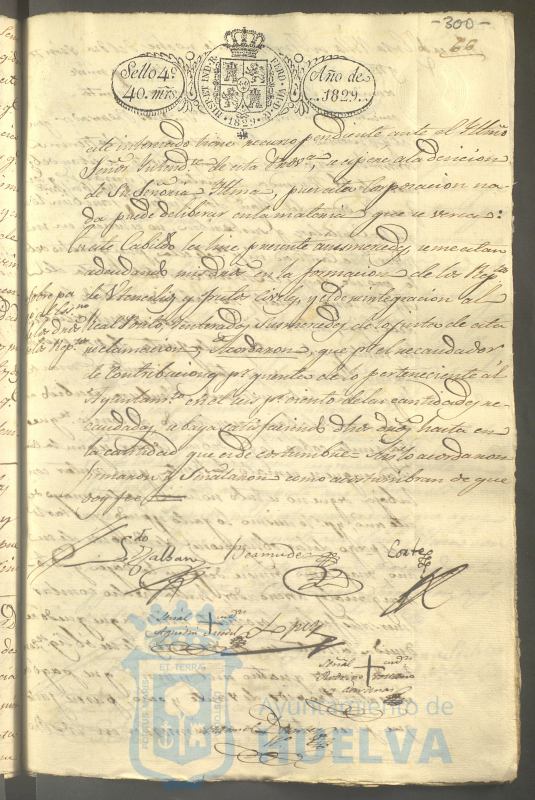 -300-
66
Sello 4º
40. mrs.
HISP. ET IND. R.
FERD. VII. D. G.
1829
Año de
1829.
este interesado tiene recurso pendiente ante el Yllmo
Señor Yntendte de esta Prova, a espera a la decicion
de Su Señoria Yllma, pues esta Corporacion na-
da puede deliberar en la materia que se versa:
En este Cabildo le hice presente a sus mercedes se me estan
adeudando mis dros en la formacion de los Repto
de Utencilios y frutos civiles, y el de reintegracion al
Real Posito, y enterados sus mercedes de lo justo de esta
reclamacion, Acordaron, que pr el recaudador
de Contribuciones pr quenta de lo perteneciente al
Ayuntamto en el seis pr ciento de las cantidades re-
caudadas se haya satisfacer dhos dros, hasta en
la cantidad que es de costumbre = Asi lo acordaron
firmaron y Señalaron como acostumbran de que
doy fee
Malban
Bermudez
Corte
Señal + de
Lopez
Señal +
Rodrigo
ET TERRÆ
Ayuntamiento de
HUELVA